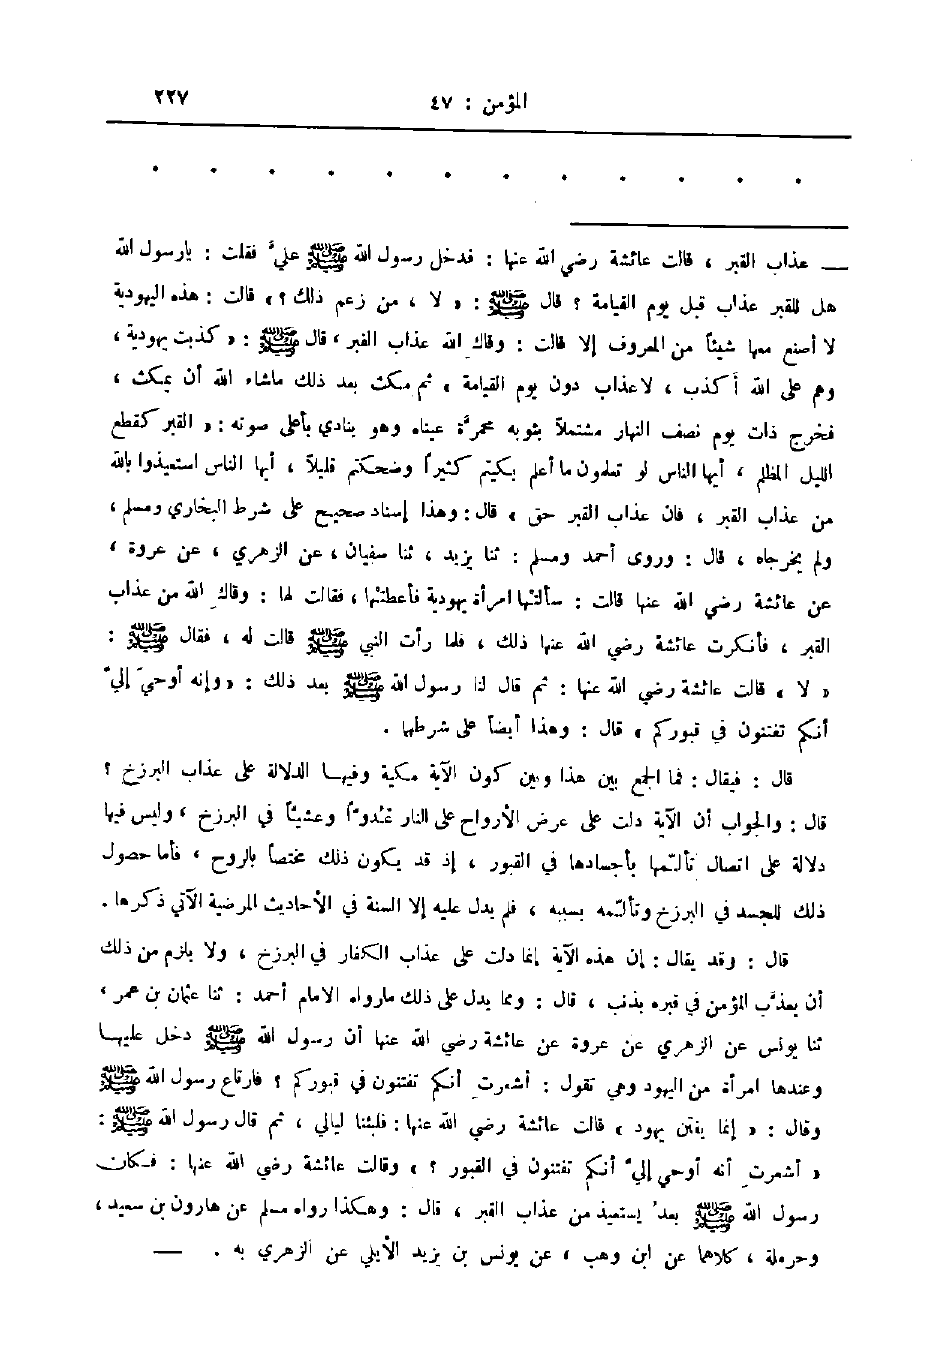 المؤمن : ٤٧ ٢٢٧
. . . . . . . . . . . .
— عذاب القبر ، قالت عائشة رضي الله عنها : فدخل رسول الله ﷺ عليَّ فقلت : يارسول الله
هل للقبر عذاب قبل يوم القيامة ؟ قال ﷺ : « لا ، من زعم ذلك ؟ » قالت : هذه اليهودية
لا أصنع معها شيئاً من المعروف إلا قالت : وقاكِ الله عذاب القبر ، قال ﷺ : « كذبت يهودية ،
وهم على الله أكذب ، لاعذاب دون يوم القيامة » ثم مكث بعد ذلك ماشاء الله أن يمكث ،
فخرج ذات يوم نصف النهار مشتملاً بثوبه محمرَّة عيناه وهو ينادي بأعلى صوته : « القبر كقطع
الليل المظلم ، أيها الناس لو تعلمون ما أعلم بكيتم كثيراً وضحكتم قليلاً ، أيها الناس استعيذوا بالله
من عذاب القبر ، فان عذاب القبر حق » قال : وهذا إسناد صحيح على شرط البخاري ومسلم ،
ولم يخرجاه ، قال : وروى أحمد ومسلم : ثنا يزيد ، ثنا سفيان ، عن الزهري ، عن عروة ،
عن عائشة رضي الله عنها قالت : سألتها امرأة يهودية فأعطتها ، فقالت لها : وقاكِ الله من عذاب
القبر ، فأنكرت عائشة رضي الله عنها ذلك ، فلما رأت النبي ﷺ قالت له ، فقال ﷺ :
« لا » قالت عائشة رضي الله عنها : ثم قال لنا رسول الله ﷺ بعد ذلك : « وإنه أوحيَ إليَّ
أنكم تفتنون في قبوركم » قال : وهذا أيضاً على شرطهما .
قال : فيقال : فما الجمع بين هذا وبين كون الآية مكية وفيهـا الدلالة على عذاب البرزخ ؟
قال : والجواب أن الآية دلت على عرض الأرواح على النار غُدُوّاً وعشيّاً في البرزخ ، وليس فيها
دلالة على اتصال تألّمها بأجسادها في القبور ، إذ قد يكون ذلك مختصاً بالروح ، فأما حصول
ذلك للجسد في البرزخ وتألّمه بسببه ، فلم يدل عليه إلا السنة في الأحاديث المرضية الآتي ذكرها .
قال : وقد يقال : إن هذه الآية إنما دلت على عذاب الكفار في البرزخ ، ولا يلزم من ذلك
أن يعذَّب المؤمن في قبره بذنب ، قال : ومما يدل على ذلك مارواه الامام أحمد : ثنا عثمان بن عمر ،
ثنا يونس عن الزهري عن عروة عن عائشة رضي الله عنها أن رسول الله ﷺ دخل عليهـا
وعندها امرأة من اليهود وهي تقول : أشعرت أنكم تفتنون في قبوركم ؟ فارتاع رسول الله ﷺ
وقال : « إنما يفتن يهود » قالت عائشة رضي الله عنها : فلبثنا ليالي ، ثم قال رسول الله ﷺ :
« أشعرتِ أنه أوحي إليَّ أنكم تفتنون في القبور ؟ » وقالت عائشة رضي الله عنها : فـكان
رسول الله ﷺ بعدُ يستعيذ من عذاب القبر ، قال : وهكذا رواه مسلم عن هارون بن سعيد ،
وحرملة ، كلاهما عن ابن وهب ، عن يونس بن يزيد الأيلي عن الزهري به . —